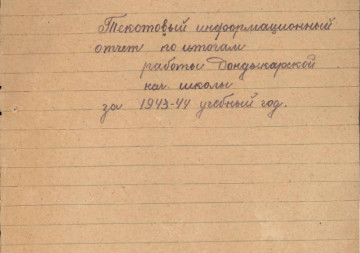 Текстовый информационный
отчет по итогам
работы Дондыкарской
нач. школы
за 1943-44 учебный год.